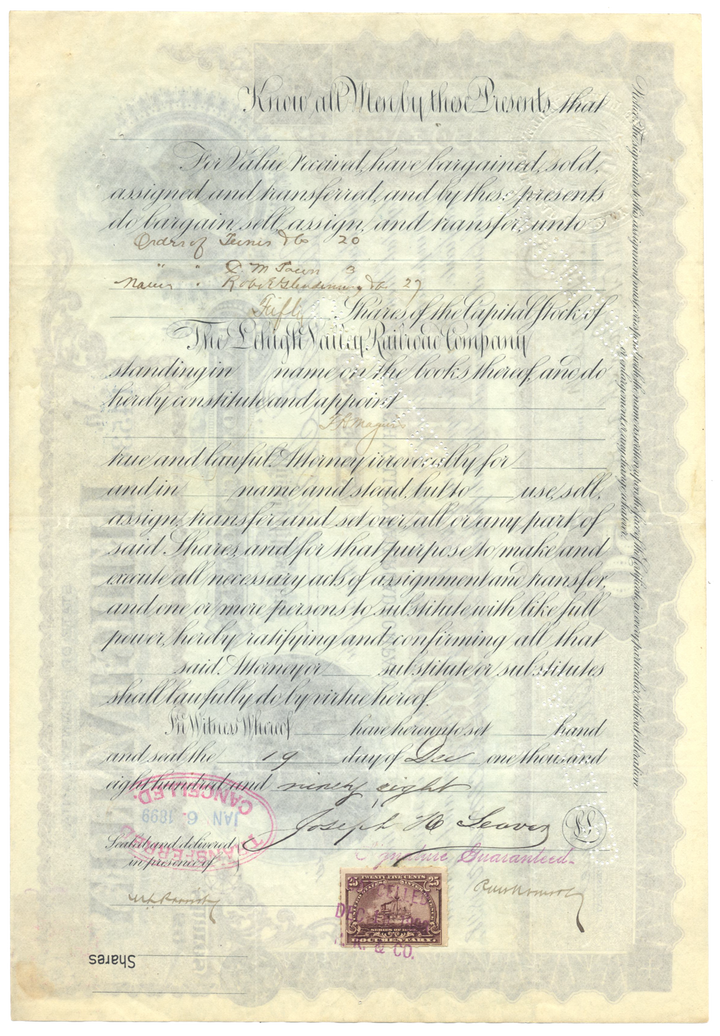 Know all Men by these Presents that
For Value Received, have bargained, sold,
assigned and transferred, and by these presents
do bargain, sell, assign, and transfer, unto
Order of 20
" " 3
Name " 27
Fifty Shares of the Capital Stock of
The Lehigh Valley Railroad Company
standing in name on the books thereof, and do
hereby constitute and appoint
true and lawful Attorney irrevocably for
and in name and stead, but to use, sell,
assign, transfer and set over, all or any part of
said Shares, and for that purpose to make and
execute all necessary acts of assignment and transfer,
and one or more persons to substitute with like full
power, hereby ratifying and confirming all that
said Attorney or substitute or substitutes
shall lawfully do by virtue hereof.
In Witness Whereof have hereunto set hand
and seal the 19 day of Dec one thousand
eight hundred and ninety eight
Joseph H
L.S.
Sealed and delivered
in presence of
Signature Guaranteed
TRANSFERRED
JAN 6. 1899
CANCELLED.
25 TWENTY FIVE CENTS 25
SERIES OF 1898
DOCUMENTARY
& CO.
Shares
Notice. The signature to this assignment must correspond with the name as written upon the face of the Certificate, in every particular, without alteration
or enlargement, or any change whatever.